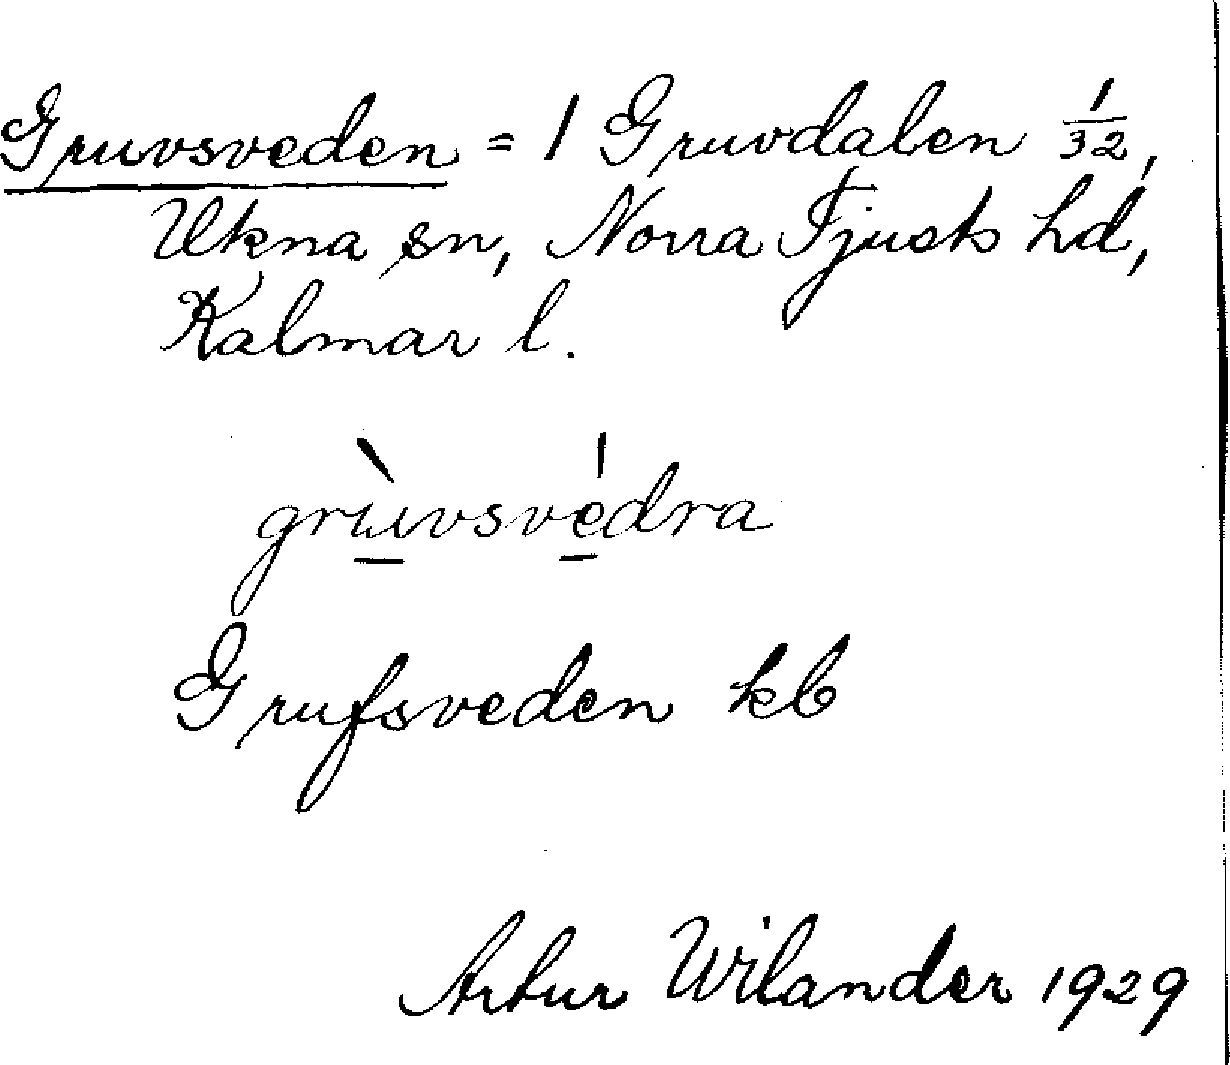 Gruvsveden = 1 Gruvdalen 1/32,
Ukna sn, Norra Tjusts hd,
Kalmar l.
grùvsvédra
Grufsveden kb
Artur Wilander 1929